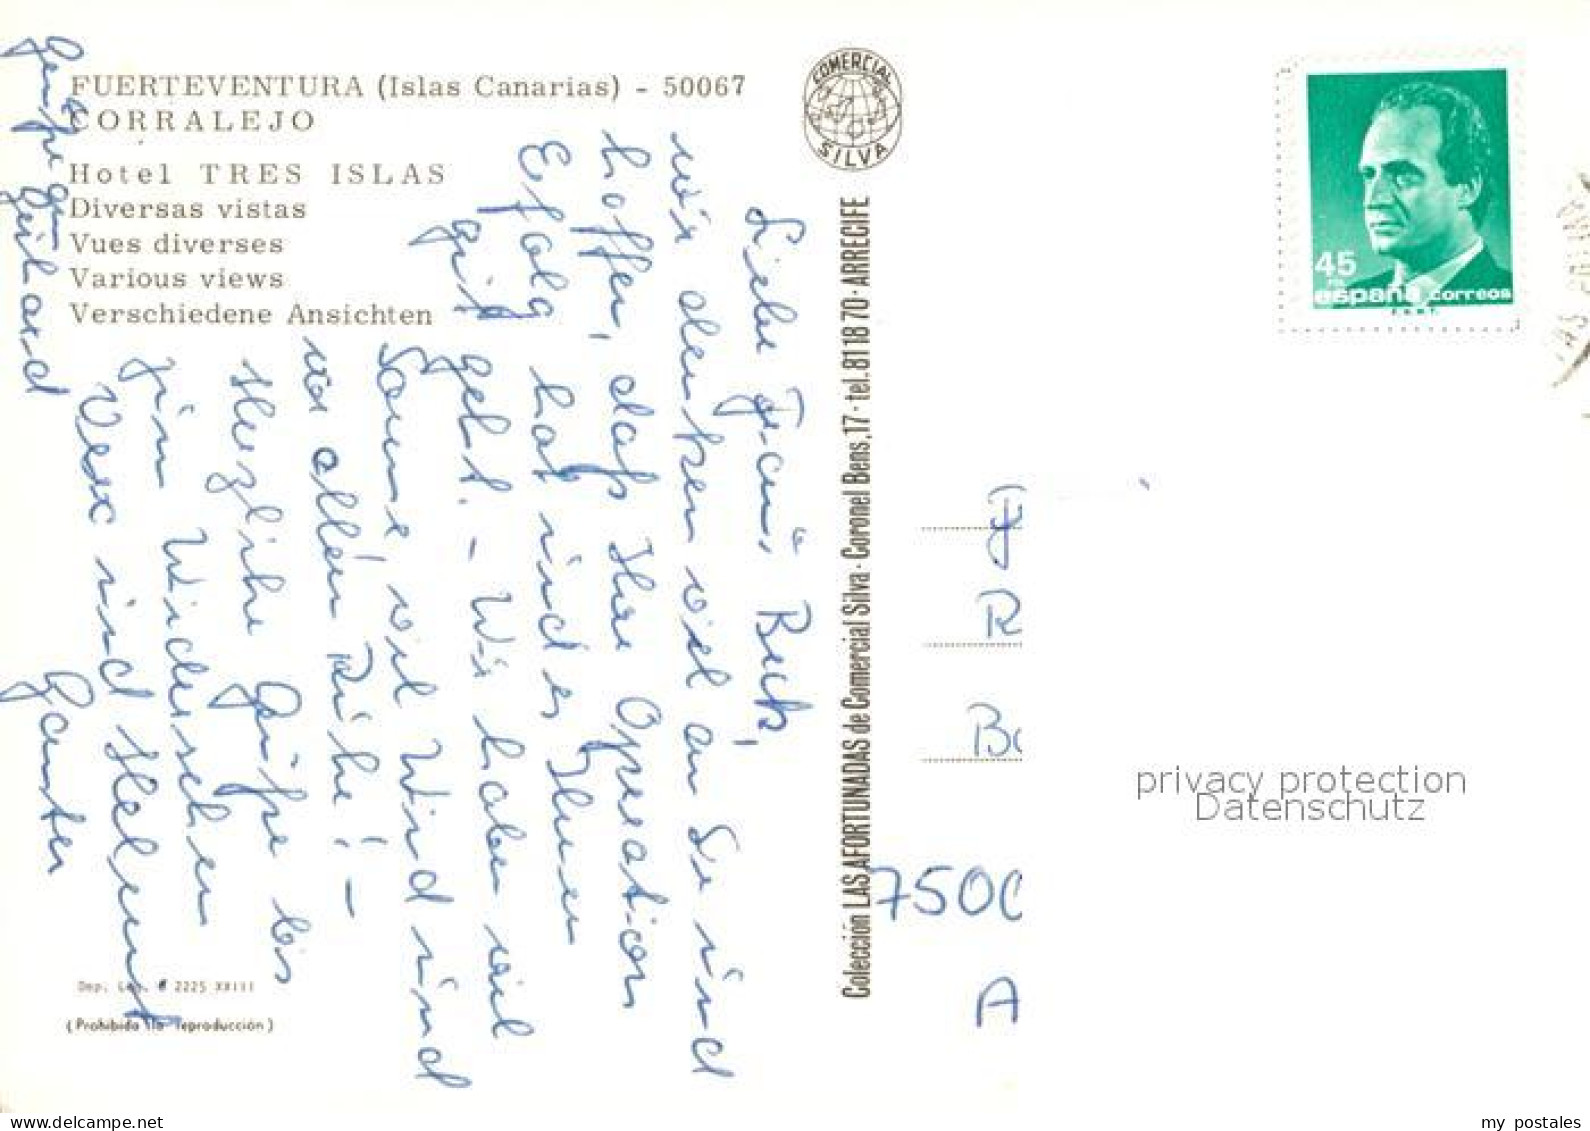 FUERTEVENTURA (Islas Canarias) - 50067
CORRALEJO
Hotel TRES ISLAS
Diversas vistas
Vues diverses
Various views
Verschiedene Ansichten
COMERCIAL
SILVA
Liebe Frau Buck,
wir denken viel an Sie und
hoffen, daß Ihre Operation
Erfolg hat und es Ihnen
gut geht. - Wir haben viel
Sonne viel Wind und
vor allem Ruhe! -
Herzliche Grüße bis
zum Wiedersehen
Vera und Helmut
Colección LAS AFORTUNADAS de Comercial Silva · Coronel Bens, 17 · tel. 81 18 70 · ARRECIFE
45
PTA
españa correos
F.N.M.T.
R
Bo
7500
A
privacy protection
Datenschutz
Dep. Leg. 2225 XXIII
(Prohibida la reproducción)
my postales